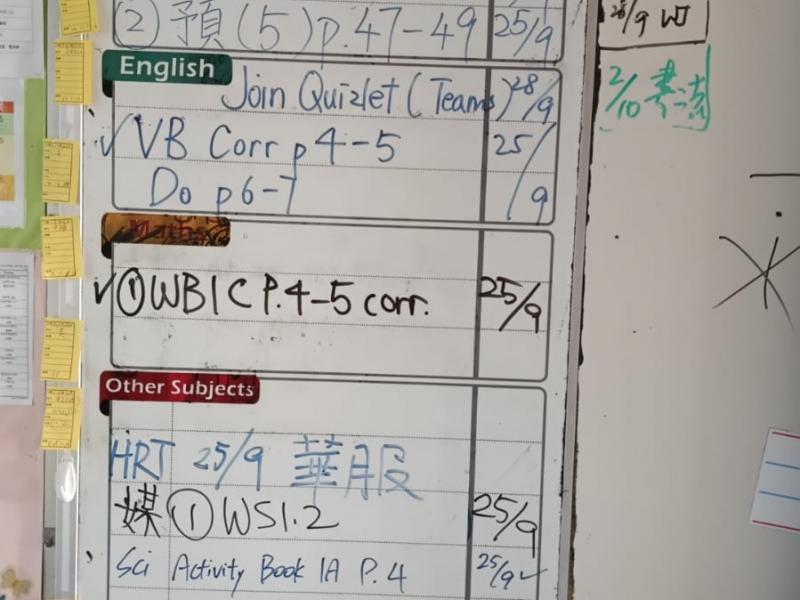 ② 預(5)p.47-49 25/9
English
Join Quizlet (Teams) 28/9
✓ VB Corr p 4-5 25/
Do p6-7 /9
Maths
✓ ① WB1C P.4-5 corr. 25/9
Other Subjects
HRT 25/9 華服
媒 ① WS1.2 25/9
Sci Activity Book 1A P.4 25/9 ✓
/9 WJ
2/10 書法